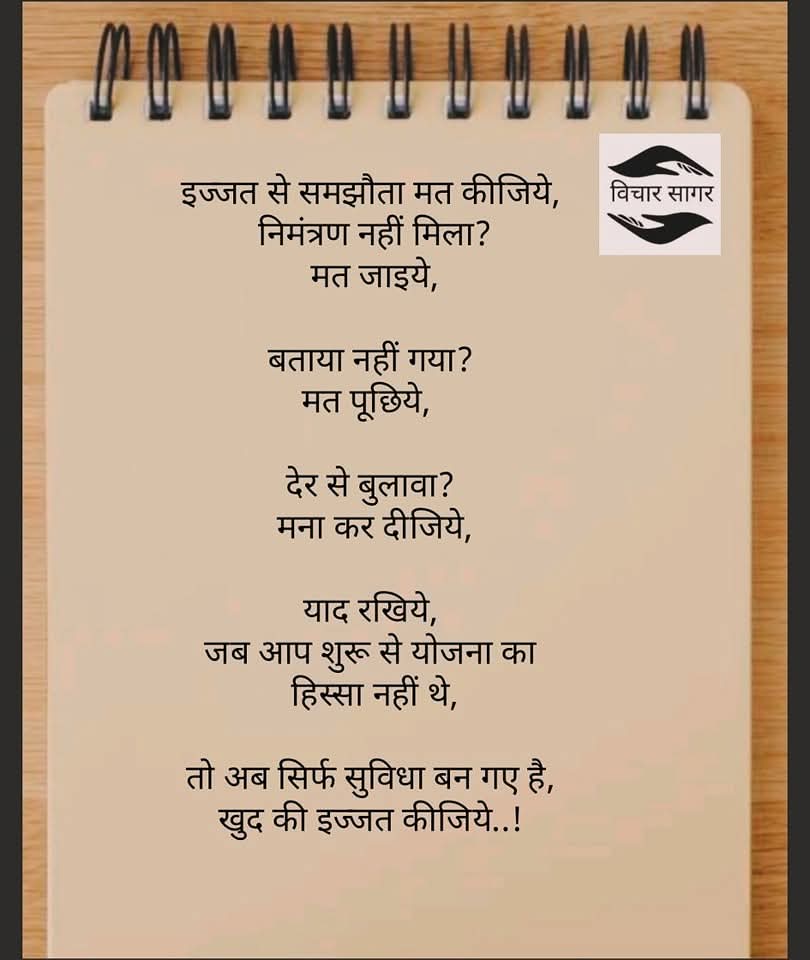 विचार सागर
इज्जत से समझौता मत कीजिये,
निमंत्रण नहीं मिला?
मत जाइये,
बताया नहीं गया?
मत पूछिये,
देर से बुलावा?
मना कर दीजिये,
याद रखिये,
जब आप शुरू से योजना का
हिस्सा नहीं थे,
तो अब सिर्फ सुविधा बन गए है,
खुद की इज्जत कीजिये..!